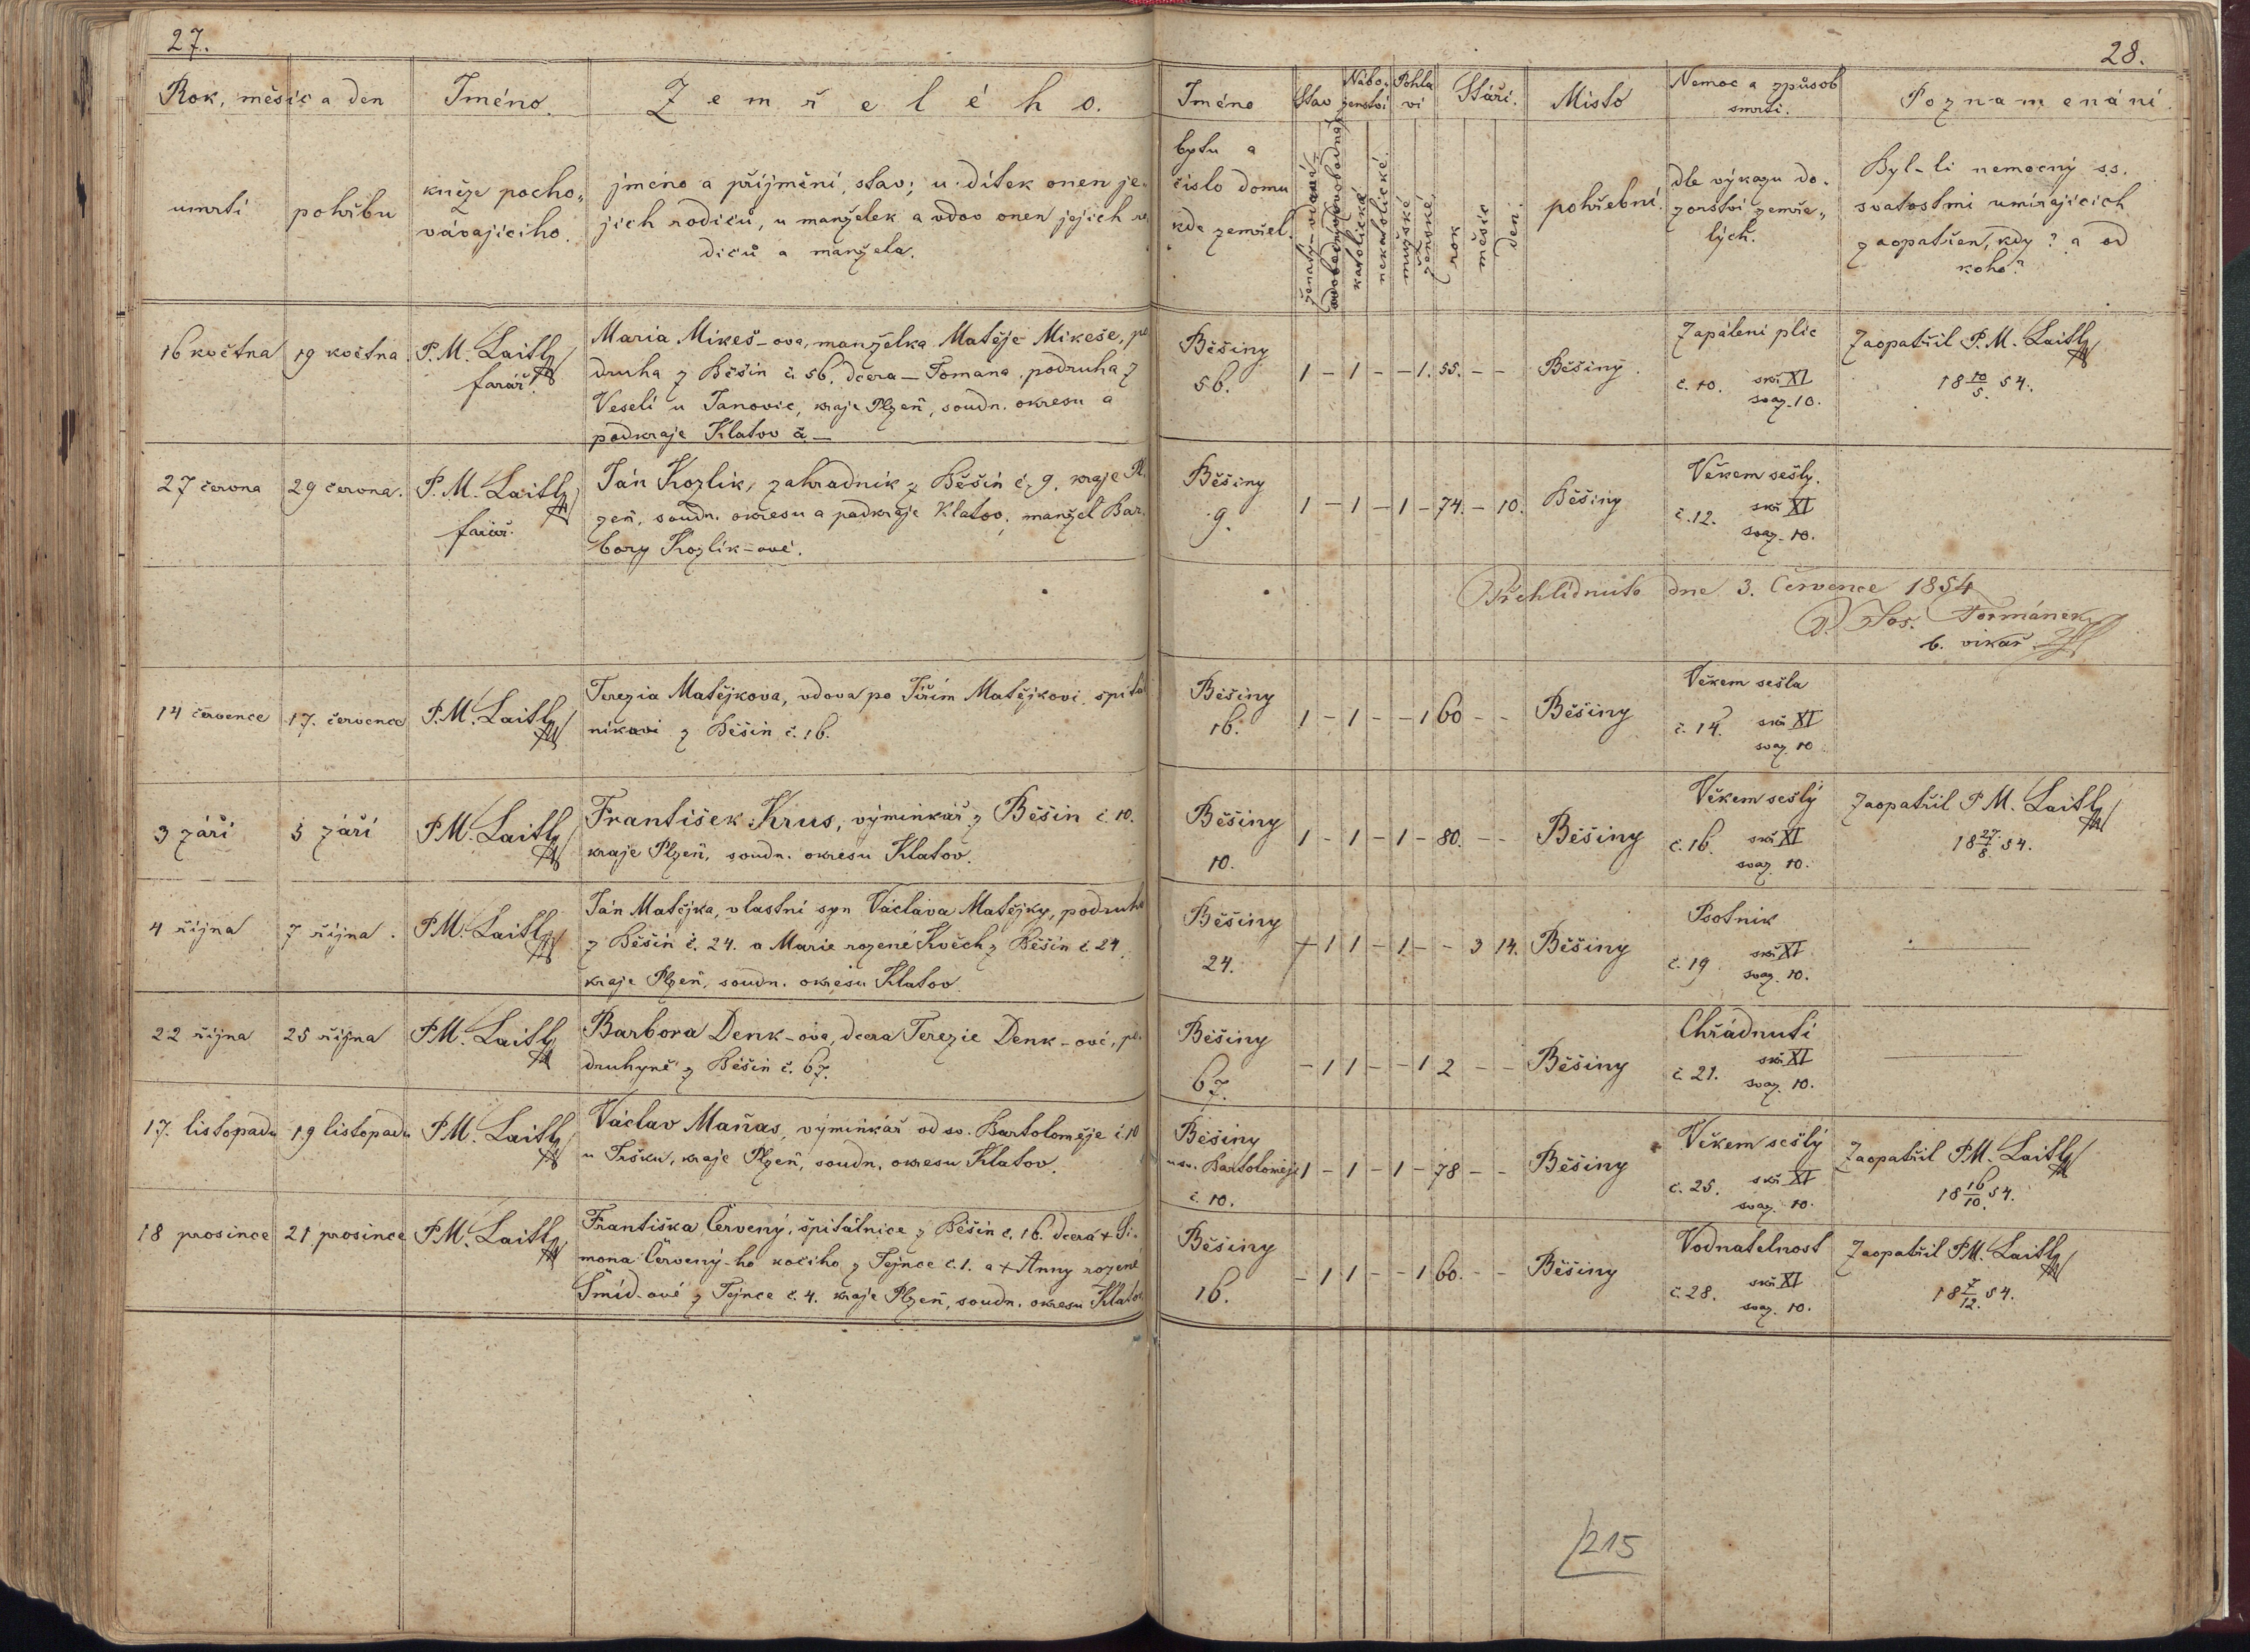 27.
Rok, měsíc a den
Jméno
Zemřelého.
umrtí
pohřbu
kněze pocho„
vávajícího.
jméno a příjmění, stav; u dítek onen je-
jich rodičů, u manželek a vdov onen jejich ro
dičů a manžela.
16 května
19 května
P. M. Laitl
farář.
Maria Mikeš-ova, manželka Matěje Mikeše, po
druha z Běšin č. 56. dcera — Tomana podruha z
Veselí u Janovic, kraje Plzeň, soudn. okresu a
podkraje Klatov č. —
27 června
29 června.
P. M. Laitl
farář.
Ján Kozlík, zahradník z Běšin č. 9. kraje Pl.
zeň, soudn. okresu a podkraje Klatov, manžel Bar.
bory Kozlík-ové.
14 července
17. července
P. M. Laitl
Terezia Matějkova, vdova po Jiřím Matějkovi, špitá
níkovi z Běšin č. 16.
3 září
5 září
P. M. Laitl
František Krus, výminkář z Běšin č. 10.
kraje Plzeň, soudn. okresu Klatov.
4 října
7 října.
P. M. Laitl
Ján Matějka, vlastní syn Václava Matějky, podruha
z Běšin č. 24. a Marie rozené Květch z Běšin č. 24.
kraje Plzeň, soudn. okresu Klatov.
22 října
25 října
P. M. Laitl
Barbora Denk-ova, dcera Terezie Denk-ové, po.
druhyně z Běšin č. 67.
17. listopadu
19 listopadu
P. M. Laitl
Václav Maňas, výminkář od sv. Bartoloměje č. 10
u Pršku, kraje Plzeň, soudn. okresu Klatov.
18 prosince
21 prosince
P. M. Laitl
Františka Červený, špitálnice z Běšin č. 16. dcera + Si-
mona Červený-ho kočího z Tejnce č. 1. a + Anny rozené
Šmíd-ové z Tejnce č. 4. kraje Plzeň, soudn. okresu Klatov
28.
Jméno
Stav
Nábo-
ženství
Pohla
ví
Stáří.
Místo
Nemoc a způsob
smrti.
Poznamenání.
bytu a
číslo domu
kde zemřel.
katolické
nekatolické.
mužské
ženské
rok
měsíc
den.
pohřební.
dle výkazu do-
zorství zemře„
lých.
Byl-li nemocný s.s.
svatostmi umírajících
zaopatřen, kdy? a od
koho?
Běšiny
56.
1 - 1 - - 1. 55. - -
Běšiny.
Zapálení plic
č. 10. skř XI
svaz. 10.
Zaopatřil P. M. Laitl
18 10/5. 54.
Běšiny
9.
1 - 1 - 1 - 74. - 10.
Běšiny
Věkem sešlý.
č. 12. skř XI
svaz. 10.
Přehlídnuto dne 3. Července 1854
P. Jos. Formánek
b. vikář
Běšiny
16.
1 - 1 - - 1 60 - -
Běšiny
Věkem sešla
č. 14. skř XI
svaz. 10
Běšiny
10.
1 - 1 - 1 - 80. - -
Běšiny
Věkem sešlý
č. 16. skř XI
svaz. 10.
Zaopatřil P. M. Laitl
18 27/8. 54.
Běšiny
24.
1 1 - 1 - - 3 14.
Běšiny
Psotník
č. 19 skř XI
svaz. 10.
Běšiny
67.
- 1 1 - - 1 2 - -
Běšiny
Chřádnutí
č. 21. skř XI
svaz. 10.
Běšiny
u sv. Bartoloměje
č. 10.
1 - 1 - 1 - 78 - -
Běšiny
Věkem sešlý
č. 25. skř XI
svaz. 10.
Zaopatřil P. M. Laitl
18 16/10. 54.
Běšiny
16.
- 1 1 - - 1 60. - -
Běšiny
Vodnatelnost
č. 28. skř XI
svaz. 10.
Zaopatřil P. M. Laitl
18 7/12. 54.
215